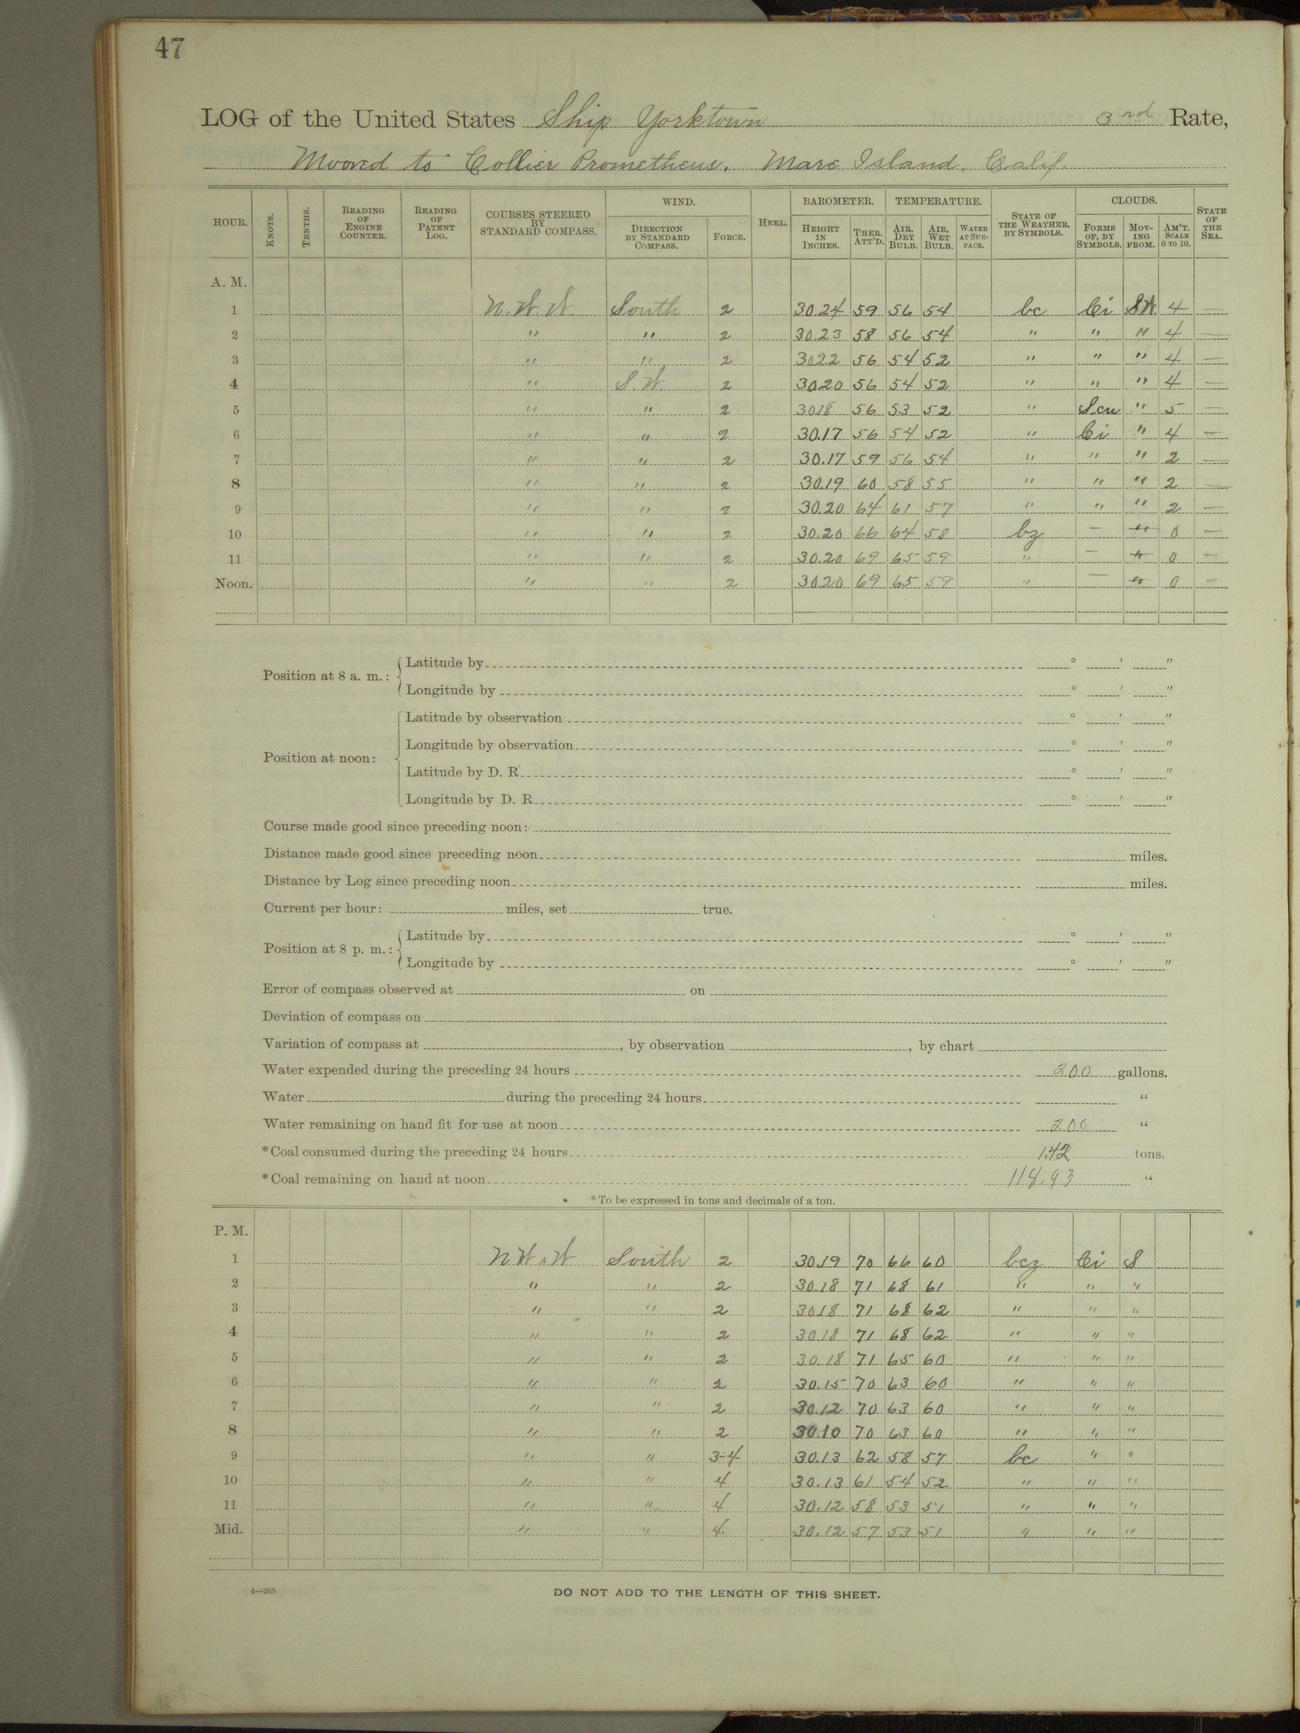 47
LOG of the United States Ship Yorktown 3rd Rate,
Moored to Collier Prometheus. Mare Island. Calif.
HOUR. KNOTS. TENTHS. READING OF ENGINE COUNTER. READING OF PATENT LOG. COURSES STEERED BY STANDARD COMPASS. WIND. DIRECTION BY STANDARD COMPASS. FORCE. HEEL. BAROMETER. HEIGHT IN INCHES. THER. ATT'D. TEMPERATURE. AIR, DRY BULB. AIR, WET BULB. WATER AT SURFACE. STATE OF THE WEATHER, BY SYMBOLS. CLOUDS. FORMS OF, BY SYMBOLS. MOVING FROM. AM'T. SCALE 0 TO 10. STATE OF THE SEA.
A. M.
1 N.W.W. South 2 30.24 59 56 54 bc Ci SW 4 —
2 " " 2 30.23 58 56 54 " " " 4 —
3 " " 2 3022 56 54 52 " " " 4 —
4 " S.W. 2 3020 56 54 52 " " " 4 —
5 " " 2 3018 56 53 52 " Scu " 5 —
6 " " 2 30.17 56 54 52 " Ci " 4 —
7 " " 2 30.17 59 56 54 " " " 2 —
8 " " 2 30.19 60 58 55 " " " 2 —
9 " " 2 30.20 64 61 57 " " " 2 —
10 " " 2 30.20 66 64 58 bz — " 0 —
11 " " 2 30.20 69 65 59 " — " 0 —
Noon. " " 2 3020 69 65 59 " — " 0 —
Position at 8 a. m.: Latitude by ° ' "
Longitude by ° ' "
Position at noon: Latitude by observation ° ' "
Longitude by observation ° ' "
Latitude by D. R. ° ' "
Longitude by D. R. ° ' "
Course made good since preceding noon:
Distance made good since preceding noon miles.
Distance by Log since preceding noon miles.
Current per hour: miles, set true.
Position at 8 p. m.: Latitude by ° ' "
Longitude by ° ' "
Error of compass observed at on
Deviation of compass on
Variation of compass at , by observation , by chart
Water expended during the preceding 24 hours 200 gallons.
Water during the preceding 24 hours “
Water remaining on hand fit for use at noon 200 “
*Coal consumed during the preceding 24 hours 1.42 tons.
*Coal remaining on hand at noon 118.93 “
*To be expressed in tons and decimals of a ton.
P. M.
1 NW.W South 2 30.19 70 66 60 bcz Ci S
2 " " 2 30.18 71 68 61 " " "
3 " " 2 3018 71 68 62 " " "
4 " " 2 30.18 71 68 62 " " "
5 " " 2 30.18 71 65 60 " " "
6 " " 2 30.15 70 63 60 " " "
7 " " 2 30.12 70 63 60 " " "
8 " " 2 3010 70 63 60 " " "
9 " " 3-4 30.13 62 58 57 bc " "
10 " " 4 30.13 61 54 52 " " "
11 " " 4 30.12 58 53 51 " " "
Mid. " " 4. 30.12 57 53 51 " " "
4—265
DO NOT ADD TO THE LENGTH OF THIS SHEET.